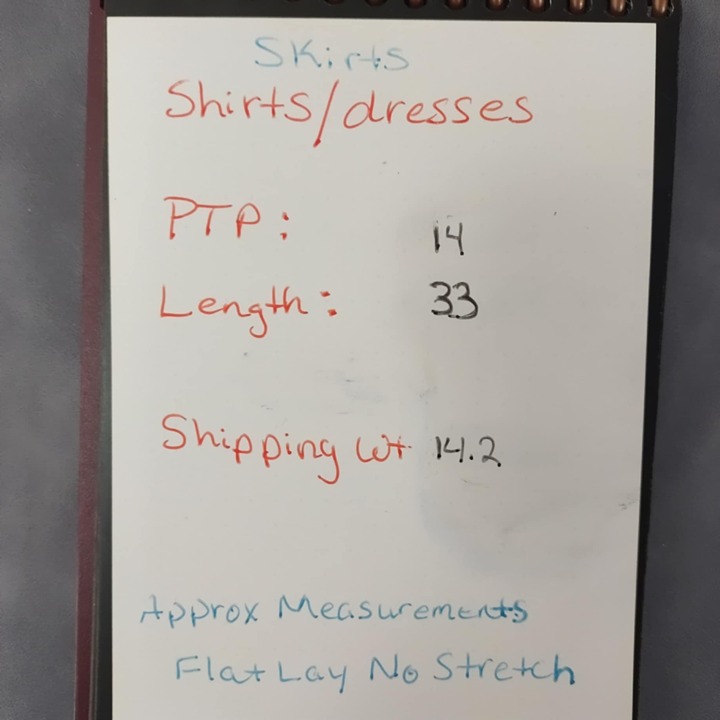 Skirts
Shirts/dresses
PTP: 14
Length: 33
Shipping Wt 14.2
Approx Measurements
Flat Lay No Stretch